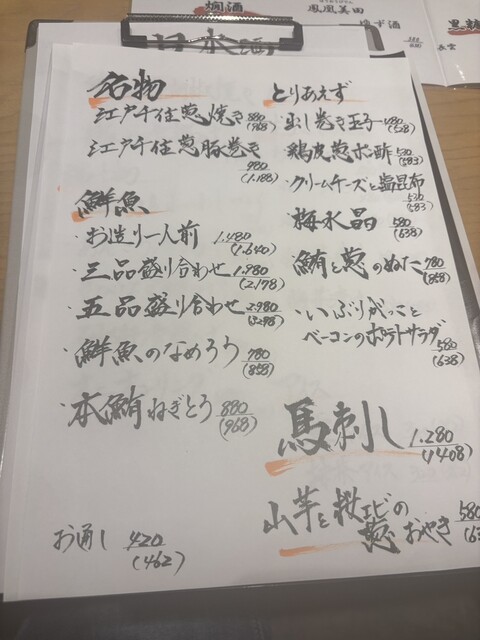 燗酒
鳳凰美田
ゆず酒
黒糖
日本酒
名物
江戸千住葱焼き 880
(968)
江戸千住葱豚巻き
980
(1.188)
鮮魚
・お造り一人前 1.480
(1.640)
・三品盛り合わせ 1.980
(2,178)
・五品盛り合わせ 2.980
(3,278)
・鮮魚のなめろう 780
(858)
・本鮪ねぎとろ 880
(968)
お通し 420
(462)
とりあえず
・出し巻き玉子 480
(528)
・鶏皮葱ポン酢 530
(583)
・クリームチーズと塩昆布
530
(583)
・梅水晶 580
(638)
・鮪と葱のぬた 780
(858)
・いぶりがっこと
ベーコンのポテトサラダ
580
(638)
馬刺し 1.280
(1408)
山芋と桜エビの
葱おやき 580